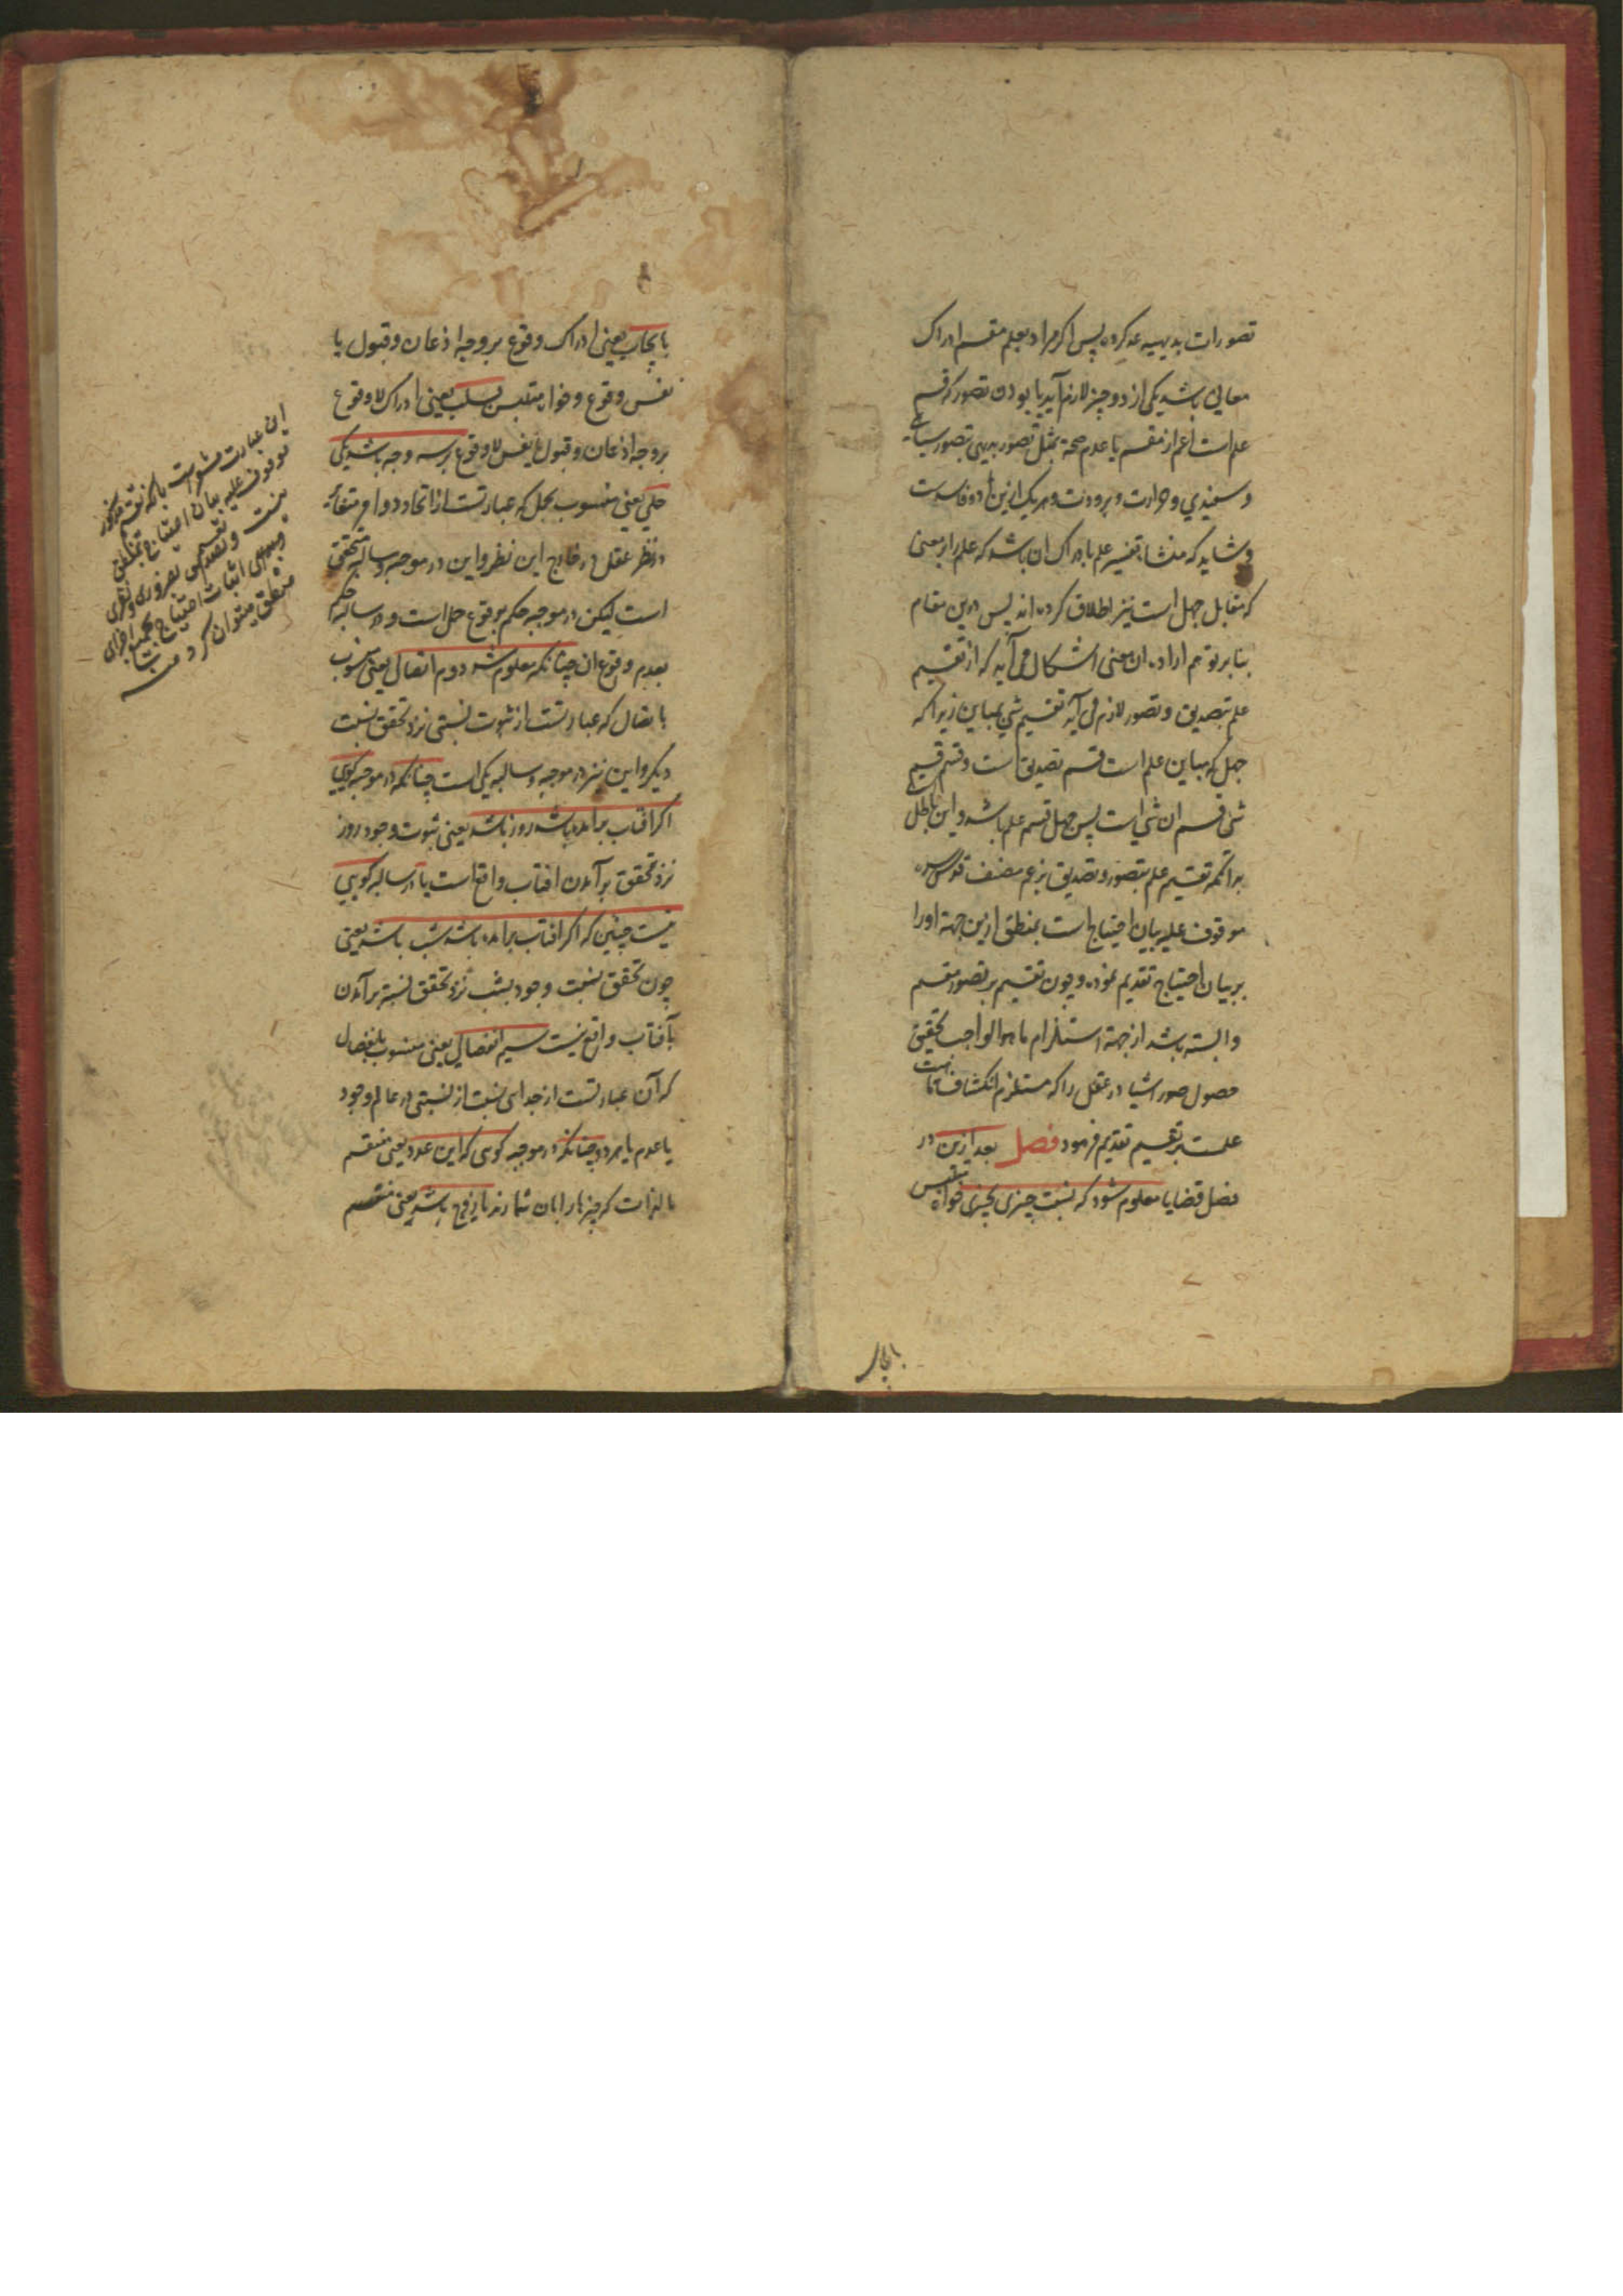 تصورات بدیهیه عد کرده پس اکر مراد بعلم مقسم ادراک
معانی باشد یکی از دو چیز لازم آید یا بودن تصور که قسم
علم است اعم از مقسم یا عدم صحة تمثیل تصور بدیهی بتصور سیاهی
و سفیدی و حرارت و برودت و هر یک ازین دو فاسدست
و شاید که منشاء تفسیر علم بادراک ان باشد که علم را بر معنی
که مقابل جهل است نیز اطلاق کرده اند پس درین مقام
بنا بر توهم اراده ان معنی اشکال می آید که از تقسیم
علم بتصدیق و تصور لازم می آید تقسیم شی بمباین زیرا که
جهل که مباین علم است قسم تصدیق است و قسم قسیم
شی قسم ان شی است پس جهل قسم علم باشد و این باطل
بدانکه تقسیم علم بتصور و تصدیق بزعم مصنف قدس سره
موقوف علیه بیان احتیاج است بمنطق ازین جهة اورا
بر بیان احتیاج تقدیم نموده و چون تقسیم بر تصور مقسم
وابسته باشد از جهة استلزام ما هو الواجب تحقیق
حصول صور اشیا در عقل را که مستلزم انکشاف است
علمست بر تقسیم تقدیم فرمود فصل بعد ازین در
فصل قضایا معلوم شود که نسبت چیزی بچیزی خواه متلبس
بایجاب
بایجاب یعنی ادراک وقوع بر وجه اذعان و قبول یا
نفس وقوع و خواه متلبس بسلب یعنی ادراک لا وقوع
بر وجه اذعان و قبول یا نفس لا وقوع بر سه وجه باشد یکی
حملی یعنی منسوب بحمل که عبارتست از اتحاد دو امر متغایر
در نظر عقل در خارج این نظر و این در موجبه و سالبه متحقق
است لیکن در موجبه حکم بوقوع حمل است و در سالبه حکم
بعدم وقوع ان چنانکه معلوم شد دوم اتصالی یعنی منسوب
باتصال که عبارتست از ثبوت نسبتی نزد تحقق نسبت
دیگر و این نیز در موجبه و سالبه یکی است چنانکه در موجبه کویی
اکر افتاب برآمده باشد روز باشد یعنی ثبوت وجود روز
نزد تحقق برآمدن افتاب واقع است یا در سالبه کویی
نیست چنین که اکر افتاب برآمده باشد شب باشد یعنی
چون تحقق نسبت وجود بشب نزد تحقق نسبة برآمدن
بآفتاب واقع نیست سیم انفصالی یعنی منسوب بانفصال
که آن عبارتست از جدای نسبت از نسبتی در عالم وجود
یا عدم یا هر دو چنانکه در موجبه کوی که این عدد یعنی منقسم
بالذات که چیزها را بان شمارند یا زوج باشد یعنی منقسم
این عبارت مشعرست بانکه تقسیم مذکور
موقوف علیه بیان احتیاج بمنطق
نیست و تقسیم بضروری و نظری
اثبات احتیاج
منطق میتوان کرد منه